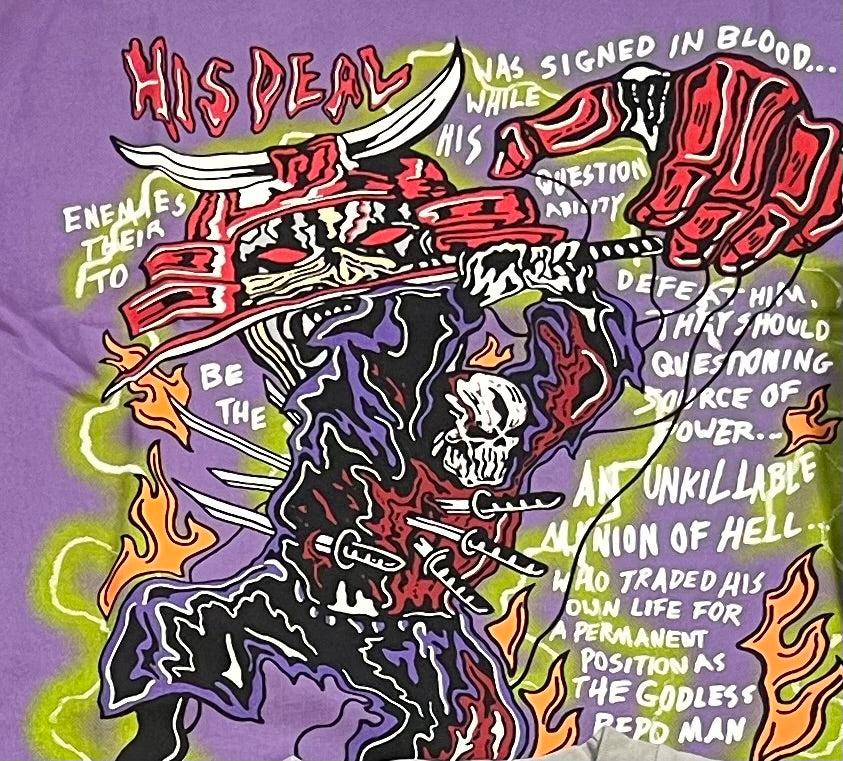 HIS DEAL WAS SIGNED IN BLOOD...
WHILE
HIS
ENEMIES QUESTION
THEIR ABILITY
TO DEFEAT HIM,
THEY SHOULD
BE QUESTIONING
THE SOURCE OF
POWER...
AN UNKILLABLE
MINION OF HELL...
WHO TRADED HIS
OWN LIFE FOR
A PERMANENT
POSITION AS
THE GODLESS
REPO MAN